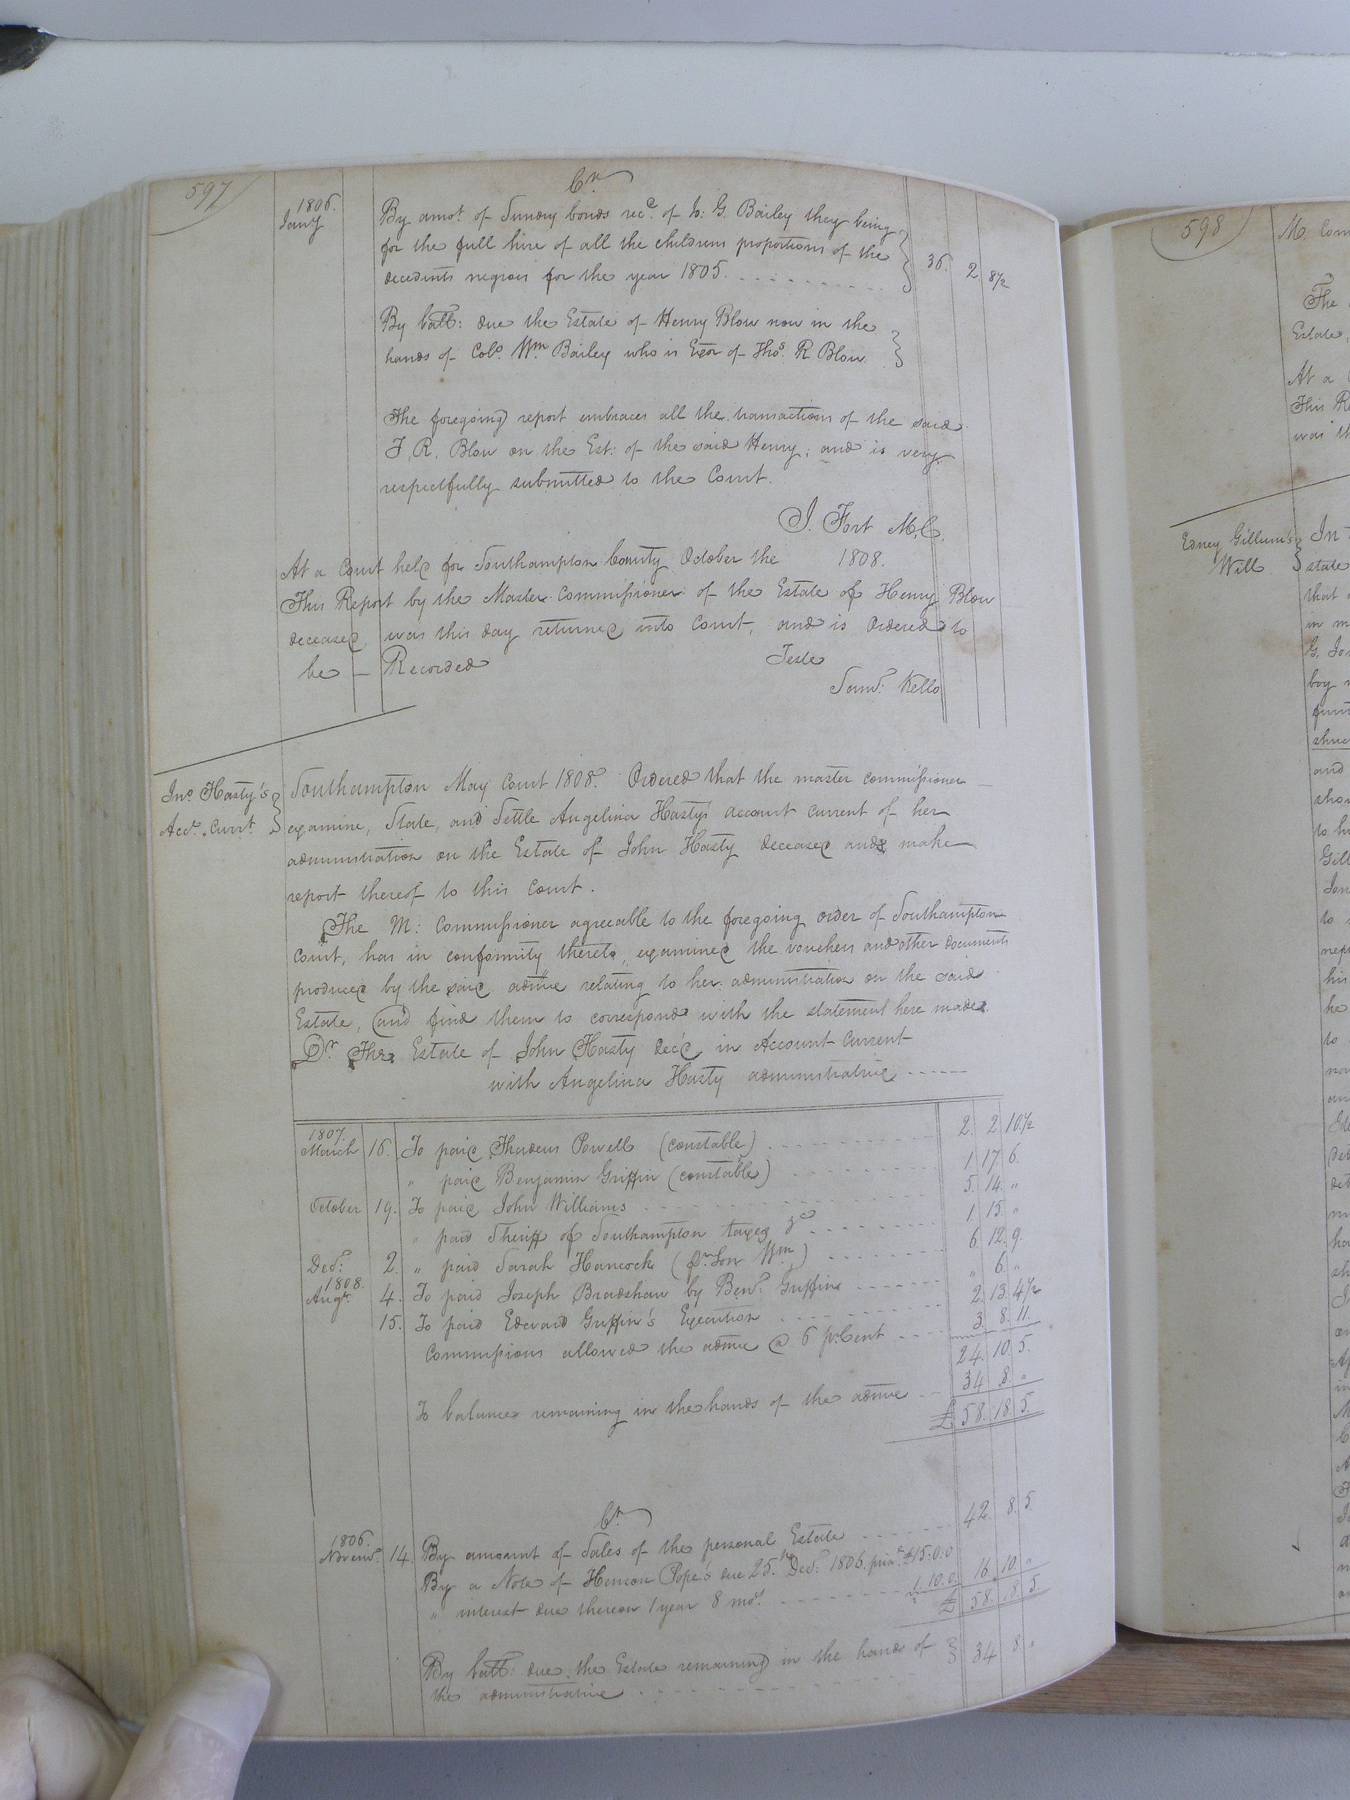 597
Cr.
1806.
Jany By amot. of Sundry bonds recd. of L: G. Bailey they being
for the full hire of all the childrens proportions of the
decedents negroes for the year 1805. 36. 2 8 1/2
By ball: due the Estate of Henry Blow now in the
hands of Colo. Wm. Bailey who is Exor of Thos. R Blow
The foregoing report embraces all the transactions of the said
T. R. Blow on the Est: of the said Henry; and is very
respectfully submitted to the Court.
J. Fort M.C.
At a Court held for Southampton County October the 1808.
This Report by the Master Commissioner of the Estate of Henry Blow
deceased was this day returned into Court, and is Ordered to
be — Recorded Teste
Saml. Kello
Jno Hasty's
Acct. Currt.
Southampton May Court 1808. Ordered that the master commissioner
examine, State, and Settle Angelina Hasty's account current of her
administration on the Estate of John Hasty deceased and make
report thereof to this Court.
The M: Commissioner agreeable to the foregoing order of Southampton
Court, has in conformity thereto, examined the vouchers and other documents
produced by the said admx relating to her administration on the said
Estate, and find them to correspond with the statement here made.
Dr The Estate of John Hasty decd in Account Current
with Angelina Hasty administratrix
1807.
March 16. To paid Thadeus Powell (constable) 2. 2. 10 1/2
" paid Benjamin Griffin (constable) 1 17 6.
October 19. To paid John Williams 5. 14. "
" paid Sheriff of Southampton taxes &c 1. 15. "
Decr: 2. " paid Sarah Hancock (pr Son Wm) 6 12. 9.
1808.
Augt. 4. To paid Joseph Bradshaw by Benj. Griffin " 6. "
15. To paid Edward Griffin's Execution 2. 13. 4 1/2
Commissions allowed the admx @ 6 pr Cent 3. 8. 11.
24. 10. 5.
To balance remaining in the hands of the admx 34 8. "
£ 58. 18. 5.
Cr.
1806.
Novemr. 14. By amount of Sales of the personal Estate 42. 8. 5.
By a Note of Henson Pope's due 25.th Decr. 1806. prinl. £15.0.0
" interest due thereon 1 year 8 mos. 1. 10. 0 16. 10 "
£ 58. 18. 5.
By ball: due the Estate remaining in the hands of
the administratrix 34 8. "
598
M. Com
The
Estate,
At a
This Re
was th
Edney Gillum's
Will
In
state
that
in m
G. Jo
boy
and
sho
to hi
Gill
to
his
he
to